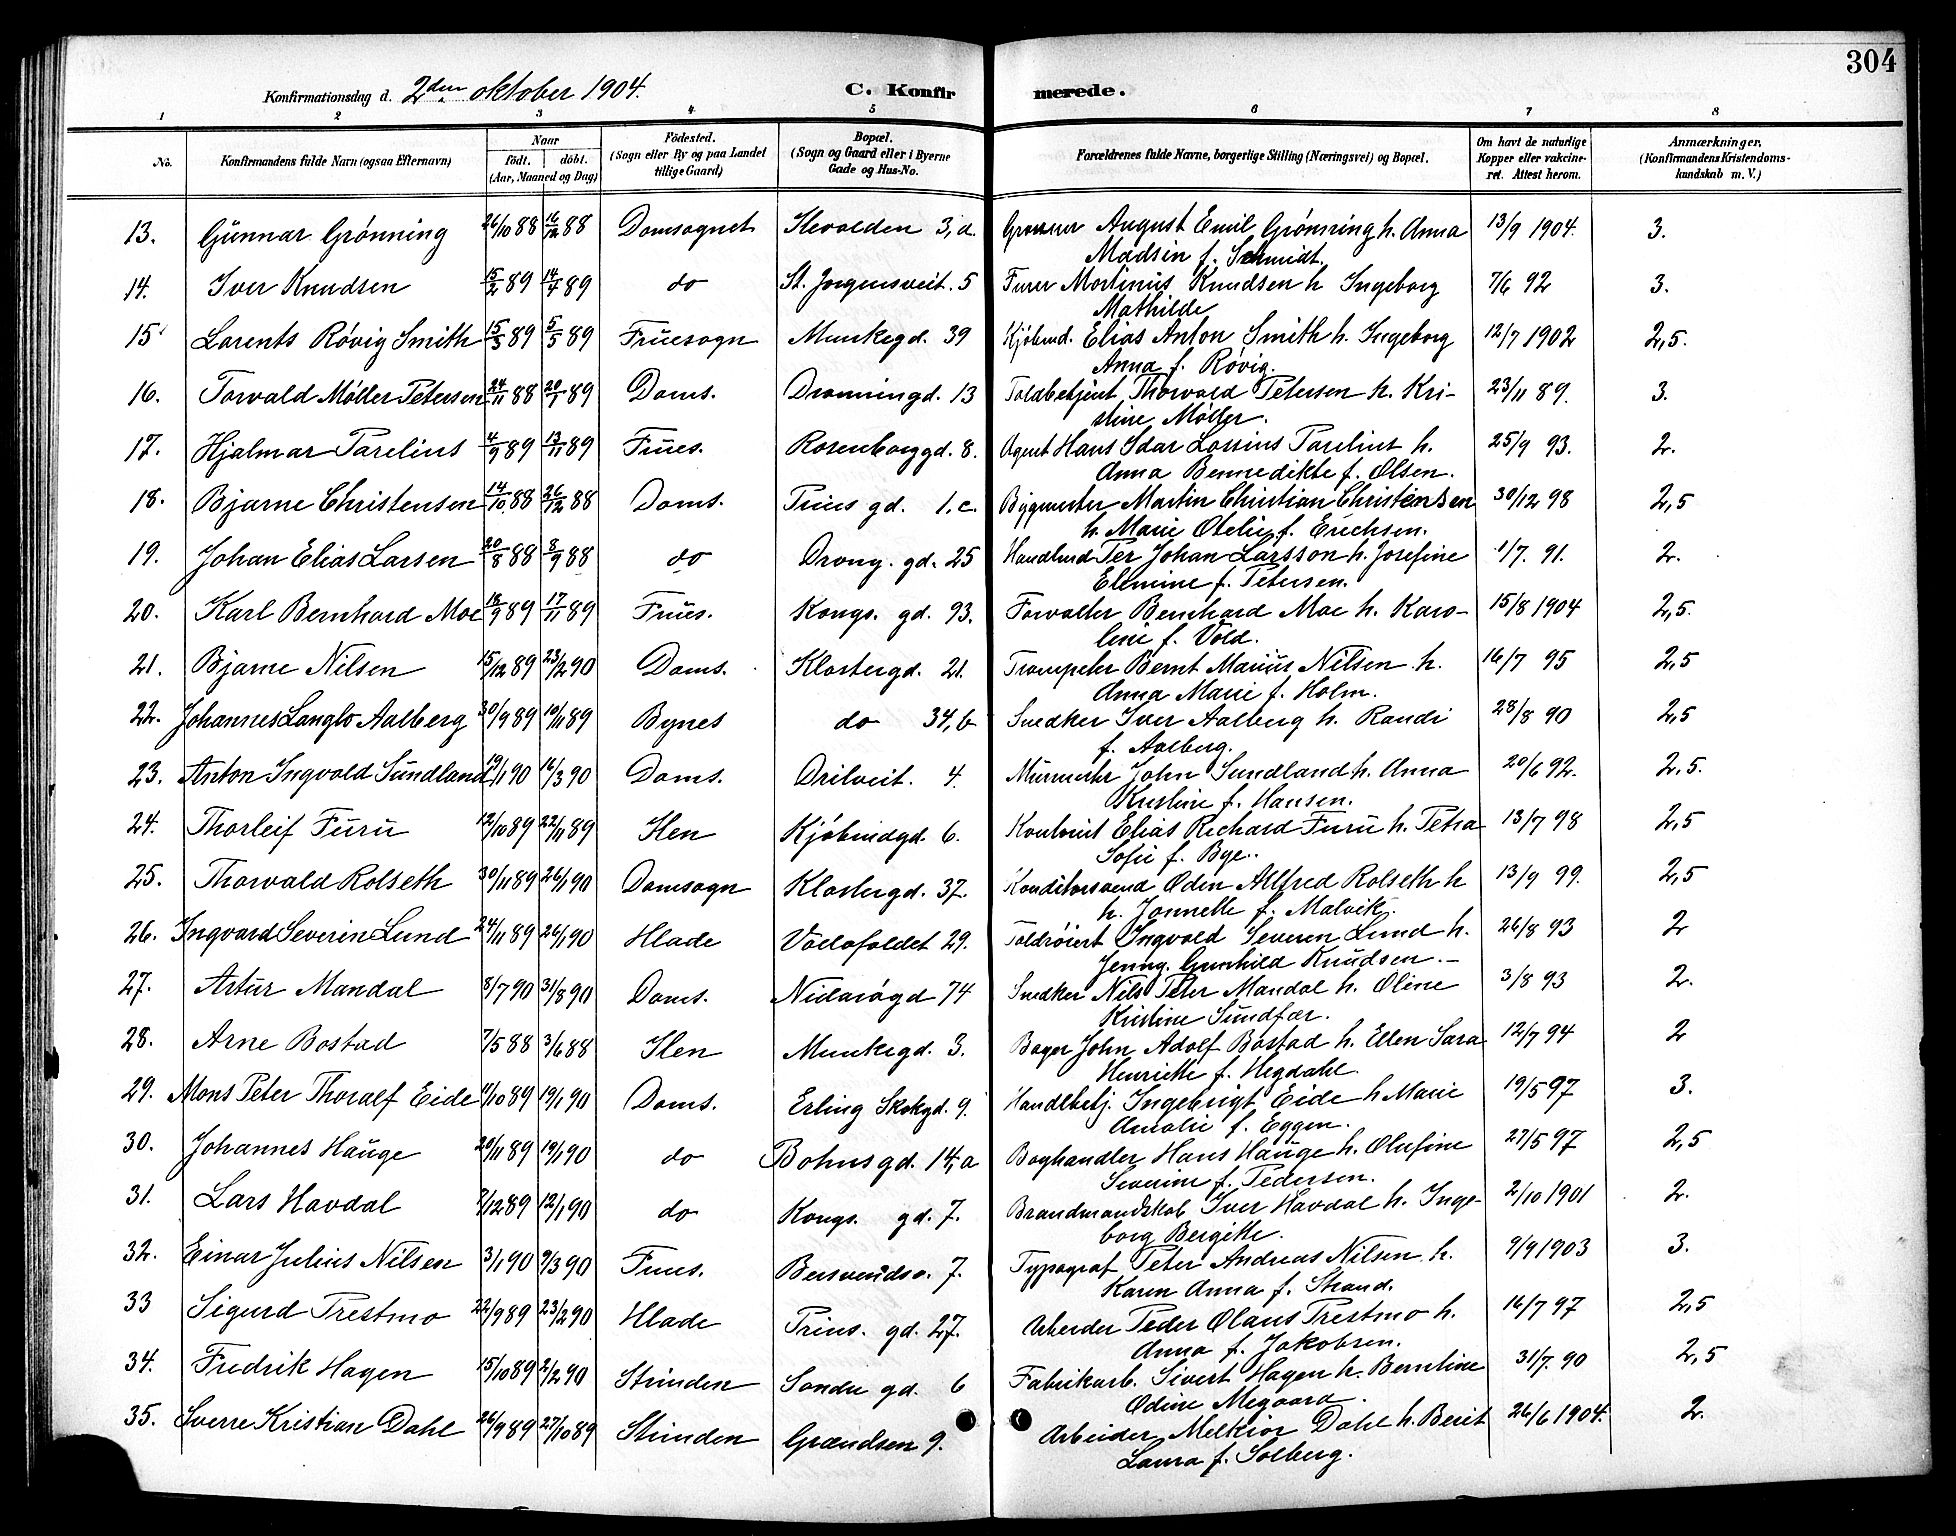 304
Konfirmationsdag d. 2den oktober 1904. C. Konfirmerede.
1 2 3 4 5 6 7 8
No. Konfirmandens fulde Navn (ogsaa Efternavn) Naar født. døbt. (Aar, Maaned og Dag) Födested. (Sogn eller By og paa Landet tillige Gaard) Bopæl. (Sogn og Gaard eller i Byerne Gade og Hus-No. Forældrenes fulde Navne, borgerlige Stilling (Næringsvei) og Bopæl. Om havt de naturlige Kopper eller vakcineret. Attest herom. Anmærkninger. (Konfirmandens Kristendomskundskab m. V.)
13. Gunnar Grønning 26/10 88 16/12 88 Domsognet Ilevolden 3, a. August Emil Grønning h. Anna 13/9 1904. 3.
Madsin f. Schmidt.
14. Iver Knudsen 15/2 89 14/7 89 do St. Jørgensveit. 5 Furer Martinus Knudsen h Ingeborg 7/6 92 3.
Mathilde
15. Lorents Røvig Smith 15/3 89 5/5 89 Fruesogn Munkegd. 39 Kjøbmd. Elias Anton Smith h. Ingeborg 12/7 1902 2,5.
Anna f. Røvig.
16. Torvald Møller Petersen 24/11 88 20/1 89 Doms. Dronningd. 13 Toldbetjent Thorvald Petersen h. Kri- 23/11 89. 3.
stine Møller.
17. Hjalmar Parelius 4/9 89 13/11 89 Frues. Rosenborggd. 8. Agent Hans Idar Lossius Parelius h. 25/9 93. 2.
Anna Bennedikte f. Olsen.
18. Bjarne Christensen 14/10 88 26/12 88 Doms. Prins gd. 1. c. Bygmester Martin Christian Christensen 30/12 98 2,5
h. Marie Otelie f. Erichsen.
19. Johan Elias Larsen 20/8 88 3/9 88 do Drong. gd. 25 Handlmd Per Johan Larsson h. Josefine 1/7. 91. 2.
Elemine f. Petersen.
20. Karl Bernhard Moe 18/9 89 17/11 89 Frues. Kongs. gd. 93. Forvalter Bernhard Moe h. Karo- 15/8 1904 2,5.
line f. Vold.
21. Bjarne Nilsen 15/12 89 23/2 90 Doms. Klostergd. 21. Trompeter Bernt Marius Nilsen h. 16/7 95 2,5
Anna Marie f. Holm.
22. Johannes Langlo Aalberg 30/9 89 10/11 89 Bynes do 34, b Snedker Iver Aalberg h. Randi 28/8 90 2,5
f. Aalberg.
23. Anton Ingvald Sundland 19/1 90 16/3 90 Doms. Ørilveit. 4. Murmester John Sundland h. Anna 20/6 92. 2,5.
Kristine f. Hansen.
24. Thorleif Furu 12/10 89 22/11 89 Ilen Kjøbmdgd. 6. Kontorist Elias Richard Furu h. Petra 13/7 98 2,5
Sofie f. Bye.
25. Thorvald Rolseth 30/11 89 26/1 90 Domsogn Klostergd. 37. Konditorsvend Oden Allfred Rolseth h 13/9 99. 2,5
h. Jonnette f. Malvik.
26. Ingvard Severin Lund 24/11 89 26/1 90 Hlade Voldafoldet 29. Toldrøiert Ingvald Severin Lund h. 26/8 93 2
Jenny. Gunhild Knudsen.
27. Artur Mandal 8/7 90 31/8 90 Doms. Nidarøgd 74 Snedker Nils Peter Mandal h. Oline 3/8 93 2.
Kristine Sundfær.
28. Arne Bostad 7/5 88 3/6 88 Ilen Munkegd. 3. Bager John Adolf Bostad h. Ellen Sara 12/7 94 2
Henriette f. Hegdahl.
29. Mons Peter Thoralf Eide 11/10 89 19/1 90 Doms. Erling Skakgd. 9. Handlbetj. Ingebrigt Eide h Marie 19/5 97 3.
Amalie f. Eggen.
30. Johannes Hauge 20/11 89 19/1 90 do Bohusgd. 14, a Boghandler Hans Hauge h. Olufine 27/5 97 2,5
Severine f. Pedersen.
31. Lars Havdal 2/12 89 12/1 90 do Kongs. gd. 7. Brandmandskab Iver Havdal h. Inge- 2/10 1901 2.
borg Bergitte.
32. Einar Julius Nilsen 3/1 90 9/3 90 Frues. Bersvendsv. 7. Typograf Peter Andreas Nilsen h. 9/9 1903 3.
Karen Anna f. Strand.
33 Sigurd Trestmo 22/9 89 23/2 90 Hlade Prins. gd. 27. Arbeider Peder Olaus Trestmo h. 16/7 97 2,5
Anna f. Jakobsen.
34. Fredrik Hagen 15/10 89 2/2 90 Strinden Sondre gd. 6 Fabrikarb. Sivert Hagen h. Berntine 31/7. 90 2,5
Odine Megaard.
35. Sverre Kristian Dahl 26/9 89 27/10 89 Strinden Grændsen 9. Arbeider Melkior Dahl h. Berit 26/6 1904. 2.
Laura f. Solberg.